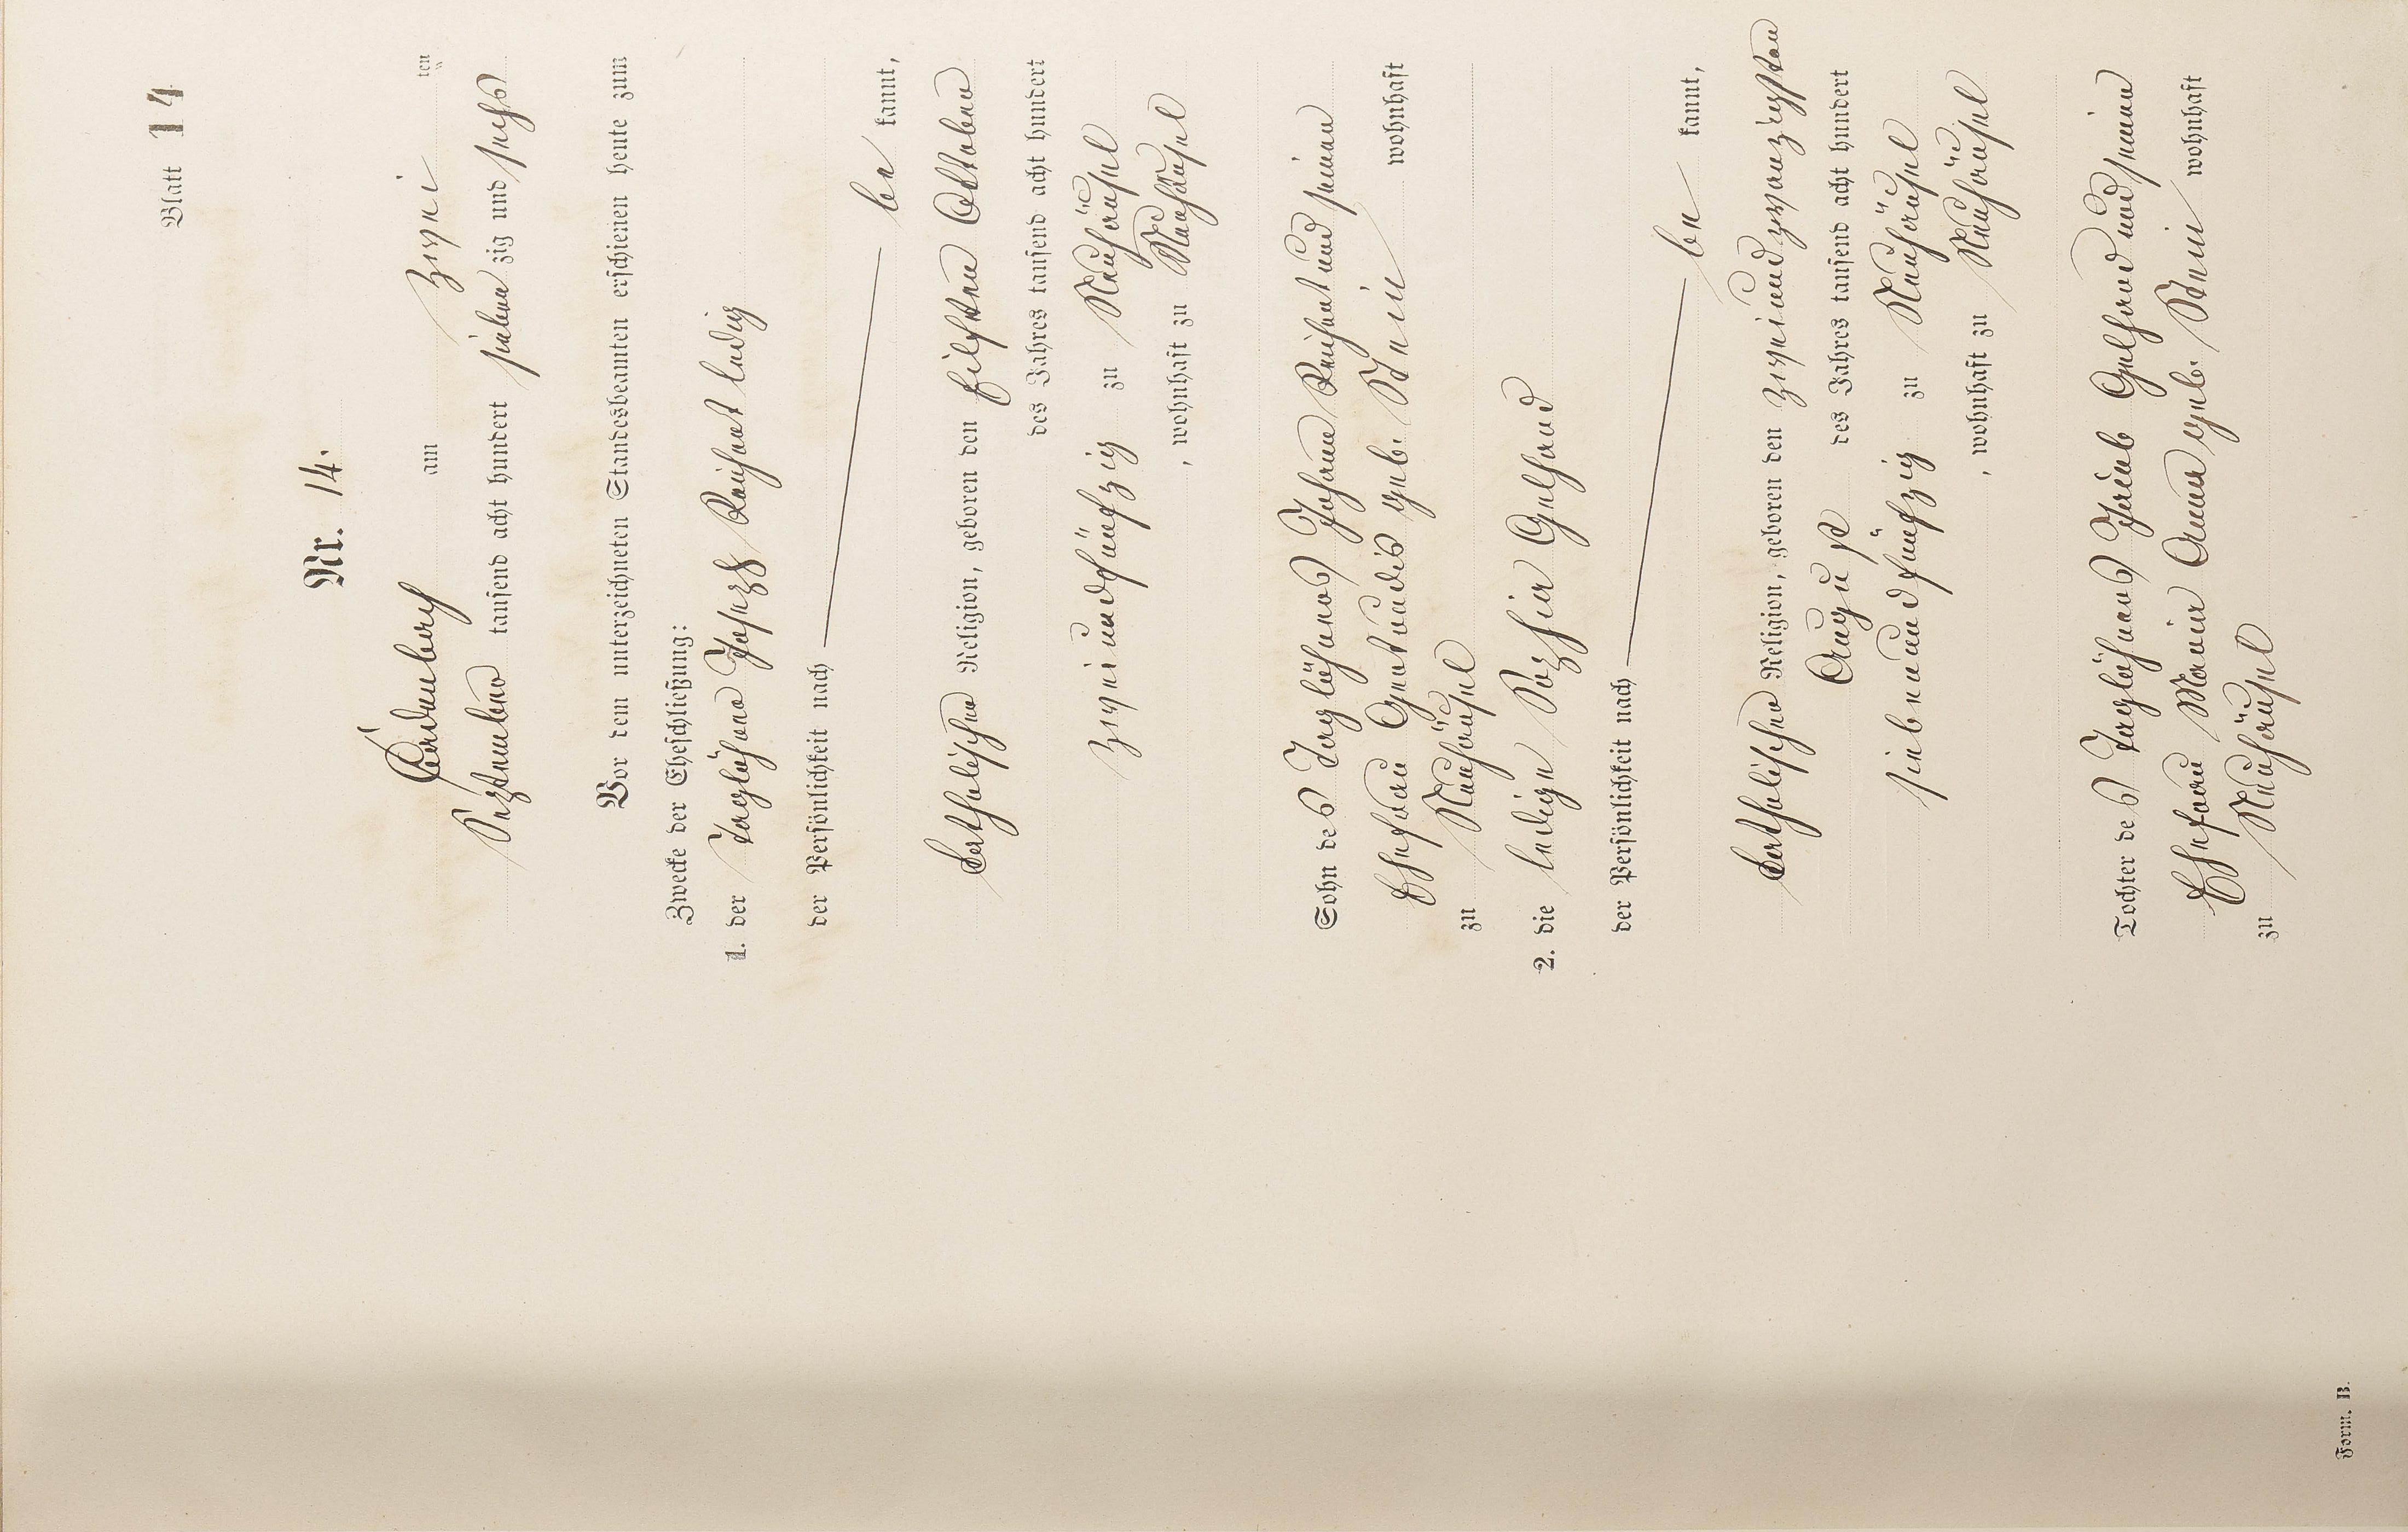 Blatt 14
Nr. 14.
Cadenbach am zwei ten
September tausend acht hundert sieben zig und sechs
Vor dem unterzeichneten Standesbeamten erschienen heute zum
Zwecke der Eheschließung:
1. der Taglöhner Joseph Reichert ledig
der Persönlichkeit nach
be kannt,
katholischer Religion, geboren den eilften October
des Jahres tausend acht hundert
zweiundfünfzig zu Neuhäusel
, wohnhaft zu Neuhäusel
Sohn des Taglöhners Johann und seiner
Ehefrau geb. wohnhaft
zu Neuhäusel
2. die ledige Sophia Gelhard
der Persönlichkeit nach
be kannt,
katholischer Religion, geboren den zweiundzwanzigsten
August des Jahres tausend acht hundert
siebenundfünfzig zu Neuhäusel
, wohnhaft zu Neuhäusel
Tochter des Taglöhners Jakob Gelhard und seiner
Ehefrau Maria Anna geb. wohnhaft
zu Neuhäusel
Form. B.